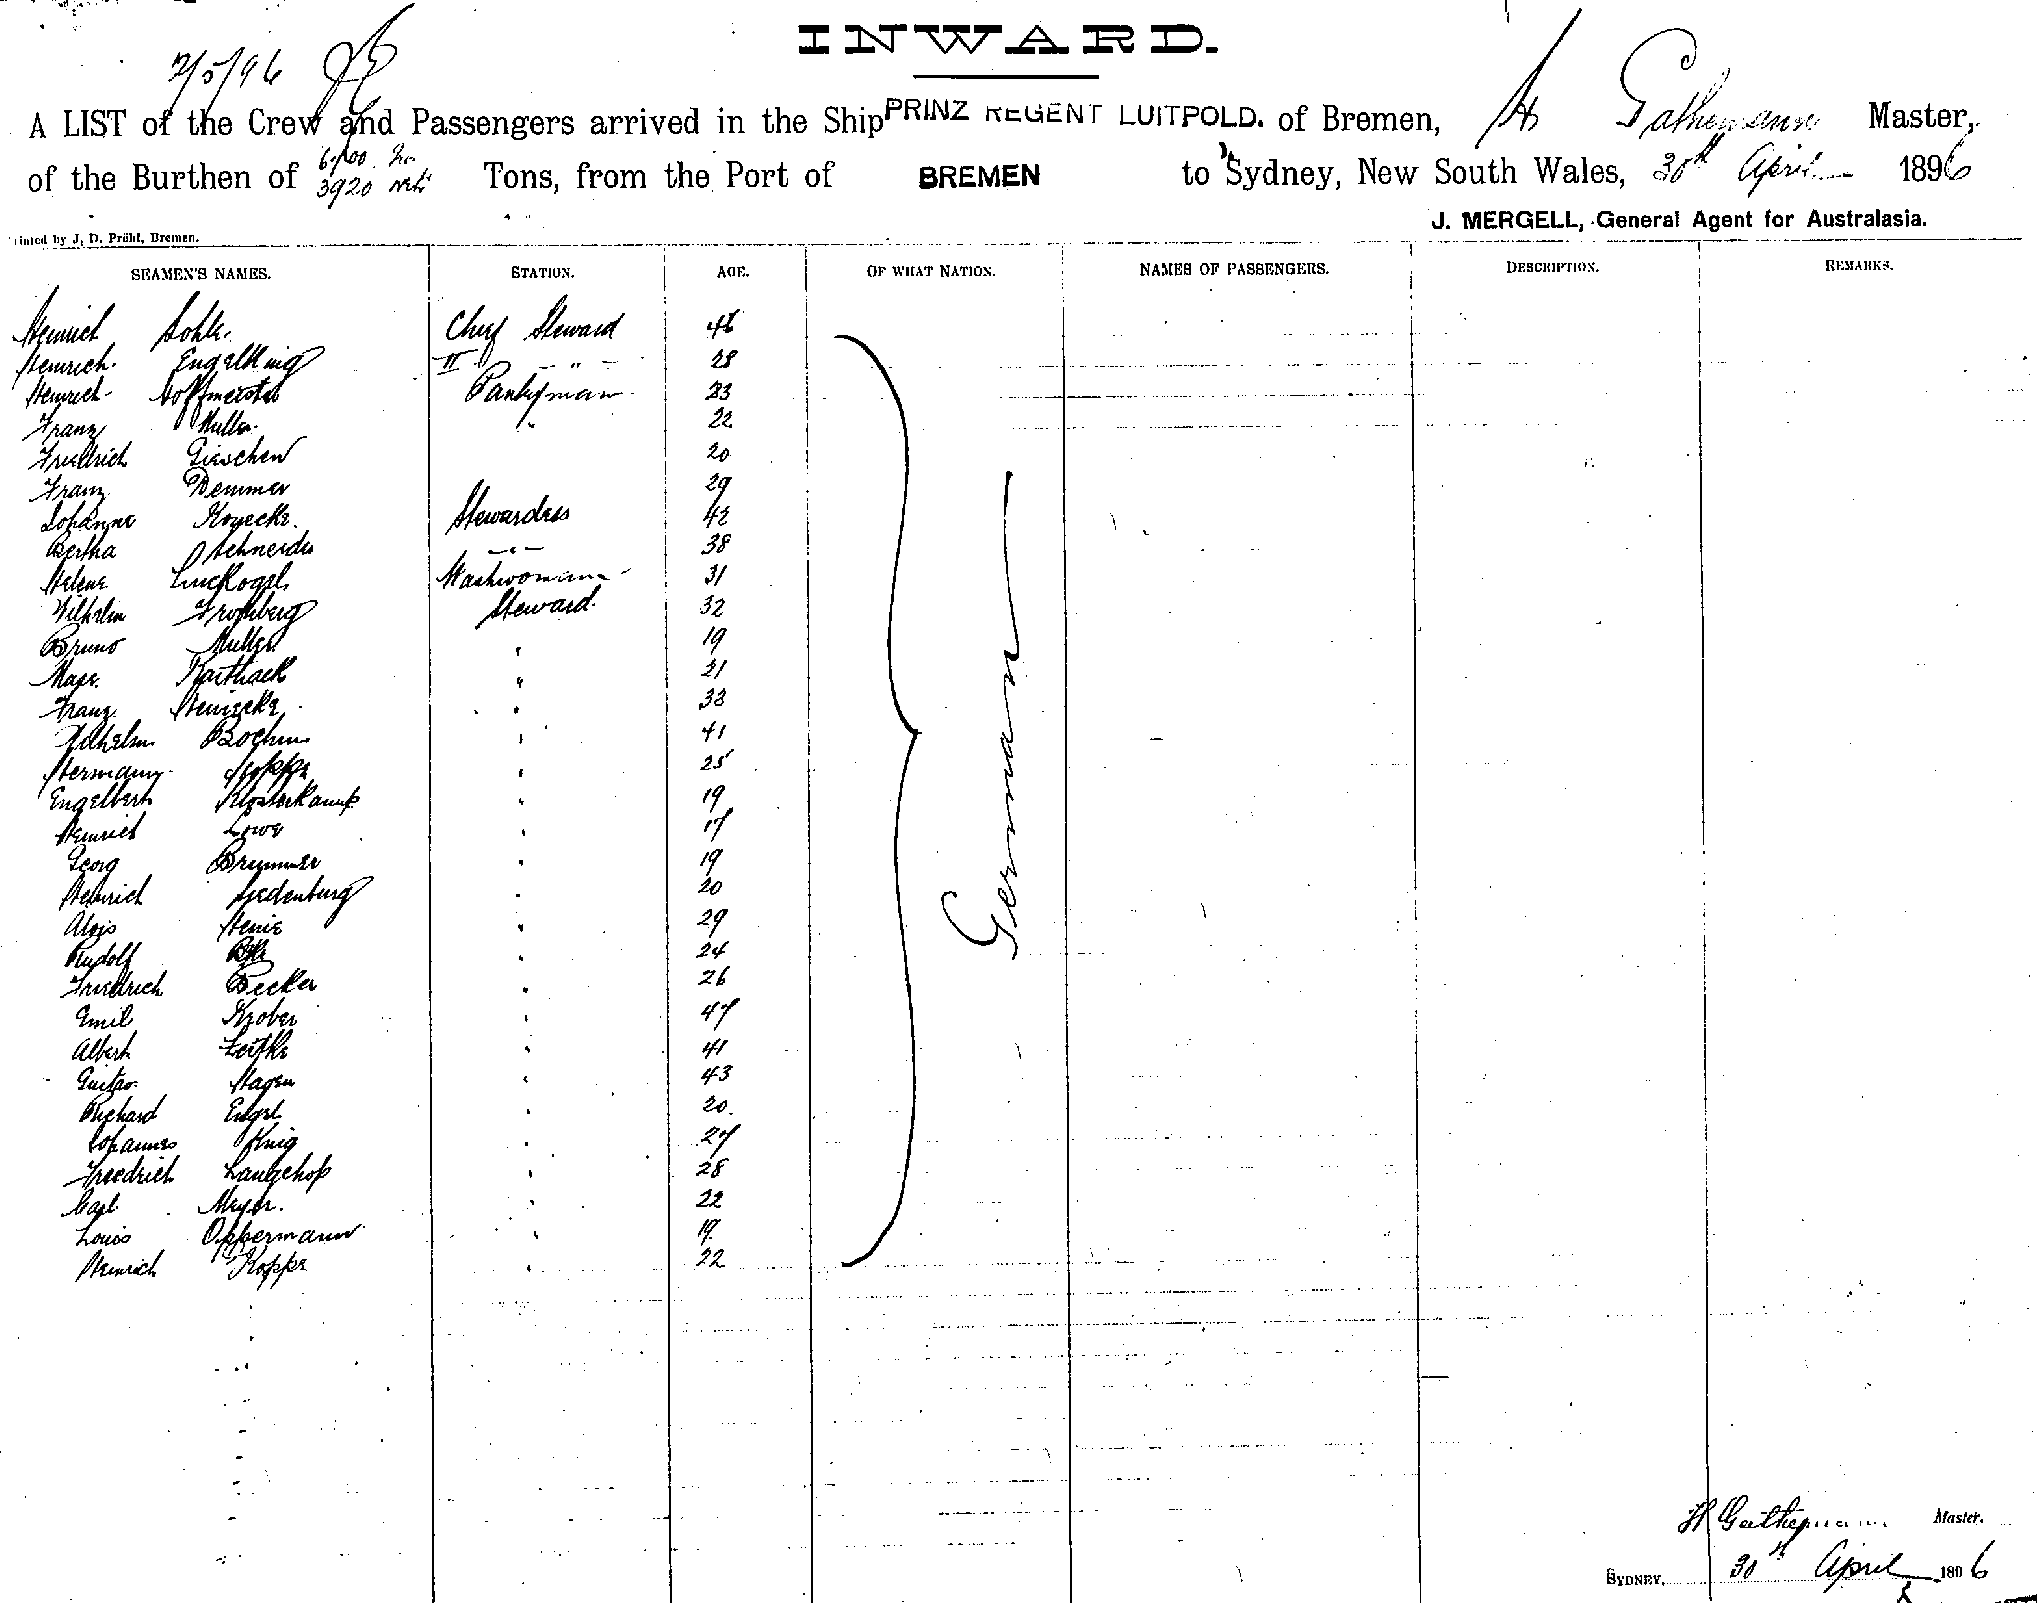 INWARD.
2/5/96
A LIST of the Crew and Passengers arrived in the Ship PRINZ REGENT LUITPOLD. of Bremen, H Gathemann Master,
of the Burthen of 3920 Tons, from the Port of BREMEN to Sydney, New South Wales, 30th April 1896
J. MERGELL, General Agent for Australasia.
Printed by J. D. Prühl, Bremen.
SEAMEN'S NAMES. STATION. AGE. OF WHAT NATION. NAMES OF PASSENGERS. DESCRIPTION. REMARKS.
Heinrich Chief Steward 46
Heinrich Engelking II " 28
Heinrich Hoffmeister Pantryman 23
Franz Muller " 22
Friedrich Gieschen 20
Franz Demmer 29
Johanne Stewardess 42
Bertha Schneider " 38
Helene Washwoman 31
Wilhelm Frohberg Steward. 32
Bruno Muller " 19
Max Karthack " 21
Franz Heinecke " 33
Wilhelm Bochm " 41
Hermann Hoppe " 25
Engelbert Klosterkamp " 19
Heinrich Lowe " 17
Georg Brummer " 19
Heinrich " 20
Alois " 29
Rudolf " 24
Friedrich Becker " 26
Emil Krober " 47
Albert " 41
Gustav Hagen " 43
Richard Engel " 20
Johannes " 27
Friedrich Langehop " 28
Carl Meyer. " 22
Louis Oppermann " 19
Heinrich Koppe " 22
German
H Gathemann Master.
SYDNEY, 30th April 1896